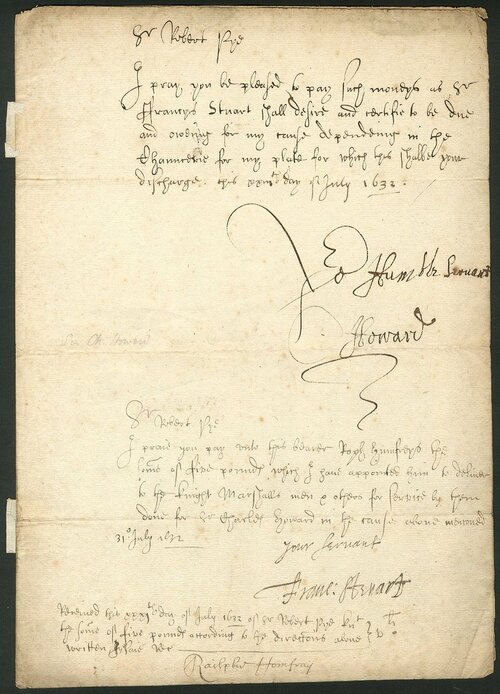 Sr Robert Pye
I pray you be pleased to pay such moneys as Sr
Francys Stuart shall desire and certifie to be due
and oweing for my cause dependeing in the
Chauncerie for my plate for which this shalbe your
discharge. this xxxith day of July 1632.
Yo Humble Servant
Howard
Sr Robert Pye
I praie you pay unto this bearer Raph Humfreys the
some of five pounds which I have appointed him to deliver
to the Knight Marshalls men & others for service by them
done for Sr Charles Howard in the cause above mencioned
31º July 1632
Your servant
Franc: Stuart
Received this xxxith day of July 1632 of Sr Robert Pye Knt
the some of five pounds according to the directions above
written I saie rec
Railphe Homfray